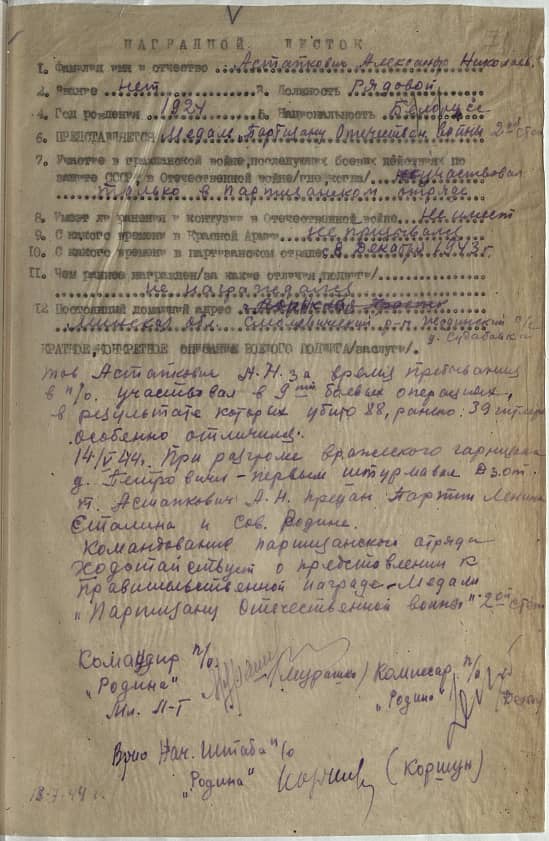 НАГРАДНОЙ ЛИСТОК
1. Фамилия имя и отчество Астапкович Александр Николаев.
2. Звание нет 3. Должность Рядовой
4. Год рождения 1924 5. Национальность Белорусс
6. ПРЕДСТАВЛЯЕТСЯ Медали „Партизану Отечествен. войны" 2ой Степ
7. Участие в гражданской войне, последующих боевых действиях по
защите СССР, в Отечественной войне/где, когда/ участвовал
только в партизанском отряде
8. Имеет ли ранения и контузии в Отечественной войне Не имеет
9. С какого времени в Красной Армии Не призывался
10. С какого времени в партизанском отряде с Декабря 1943 г
11. Чем раннее награжден/за какие отличия, подвиги/
не награждался
12 Постоянный домашний адрес
Минская обл. Смолевичский р-н п/с
д. Судабовка
КРАТКОЕ, КОНКРЕТНОЕ ОПИСАНИЕ БОЕВОГО ПОДВИГА/заслуги/.
тов Астапкович А.Н. за время пребывания
в п/о. участвовал в 9ти боевых операциях,
в результате которых убито 88, ранено 39
особенно отличился.
14/V-44г. При разгроме вражеского гарнизона
д. Петровичи - первым штурмовал Дзот.
т. Астапкович А.Н. предан Партии Ленина
Сталина и Сов. Родине.
Командование партизанского отряда
Ходотайствует о представлении к
Правительственной награде - Медали
„Партизану Отечественной войны" 2ой степ
Командир п/о. (Мурашко) Комиссар п/о
„Родина" „Родина"
Мл. Л-т
Врио Нач. Штаба п/о
„Родина" (Коршун)
18-7-44 г.